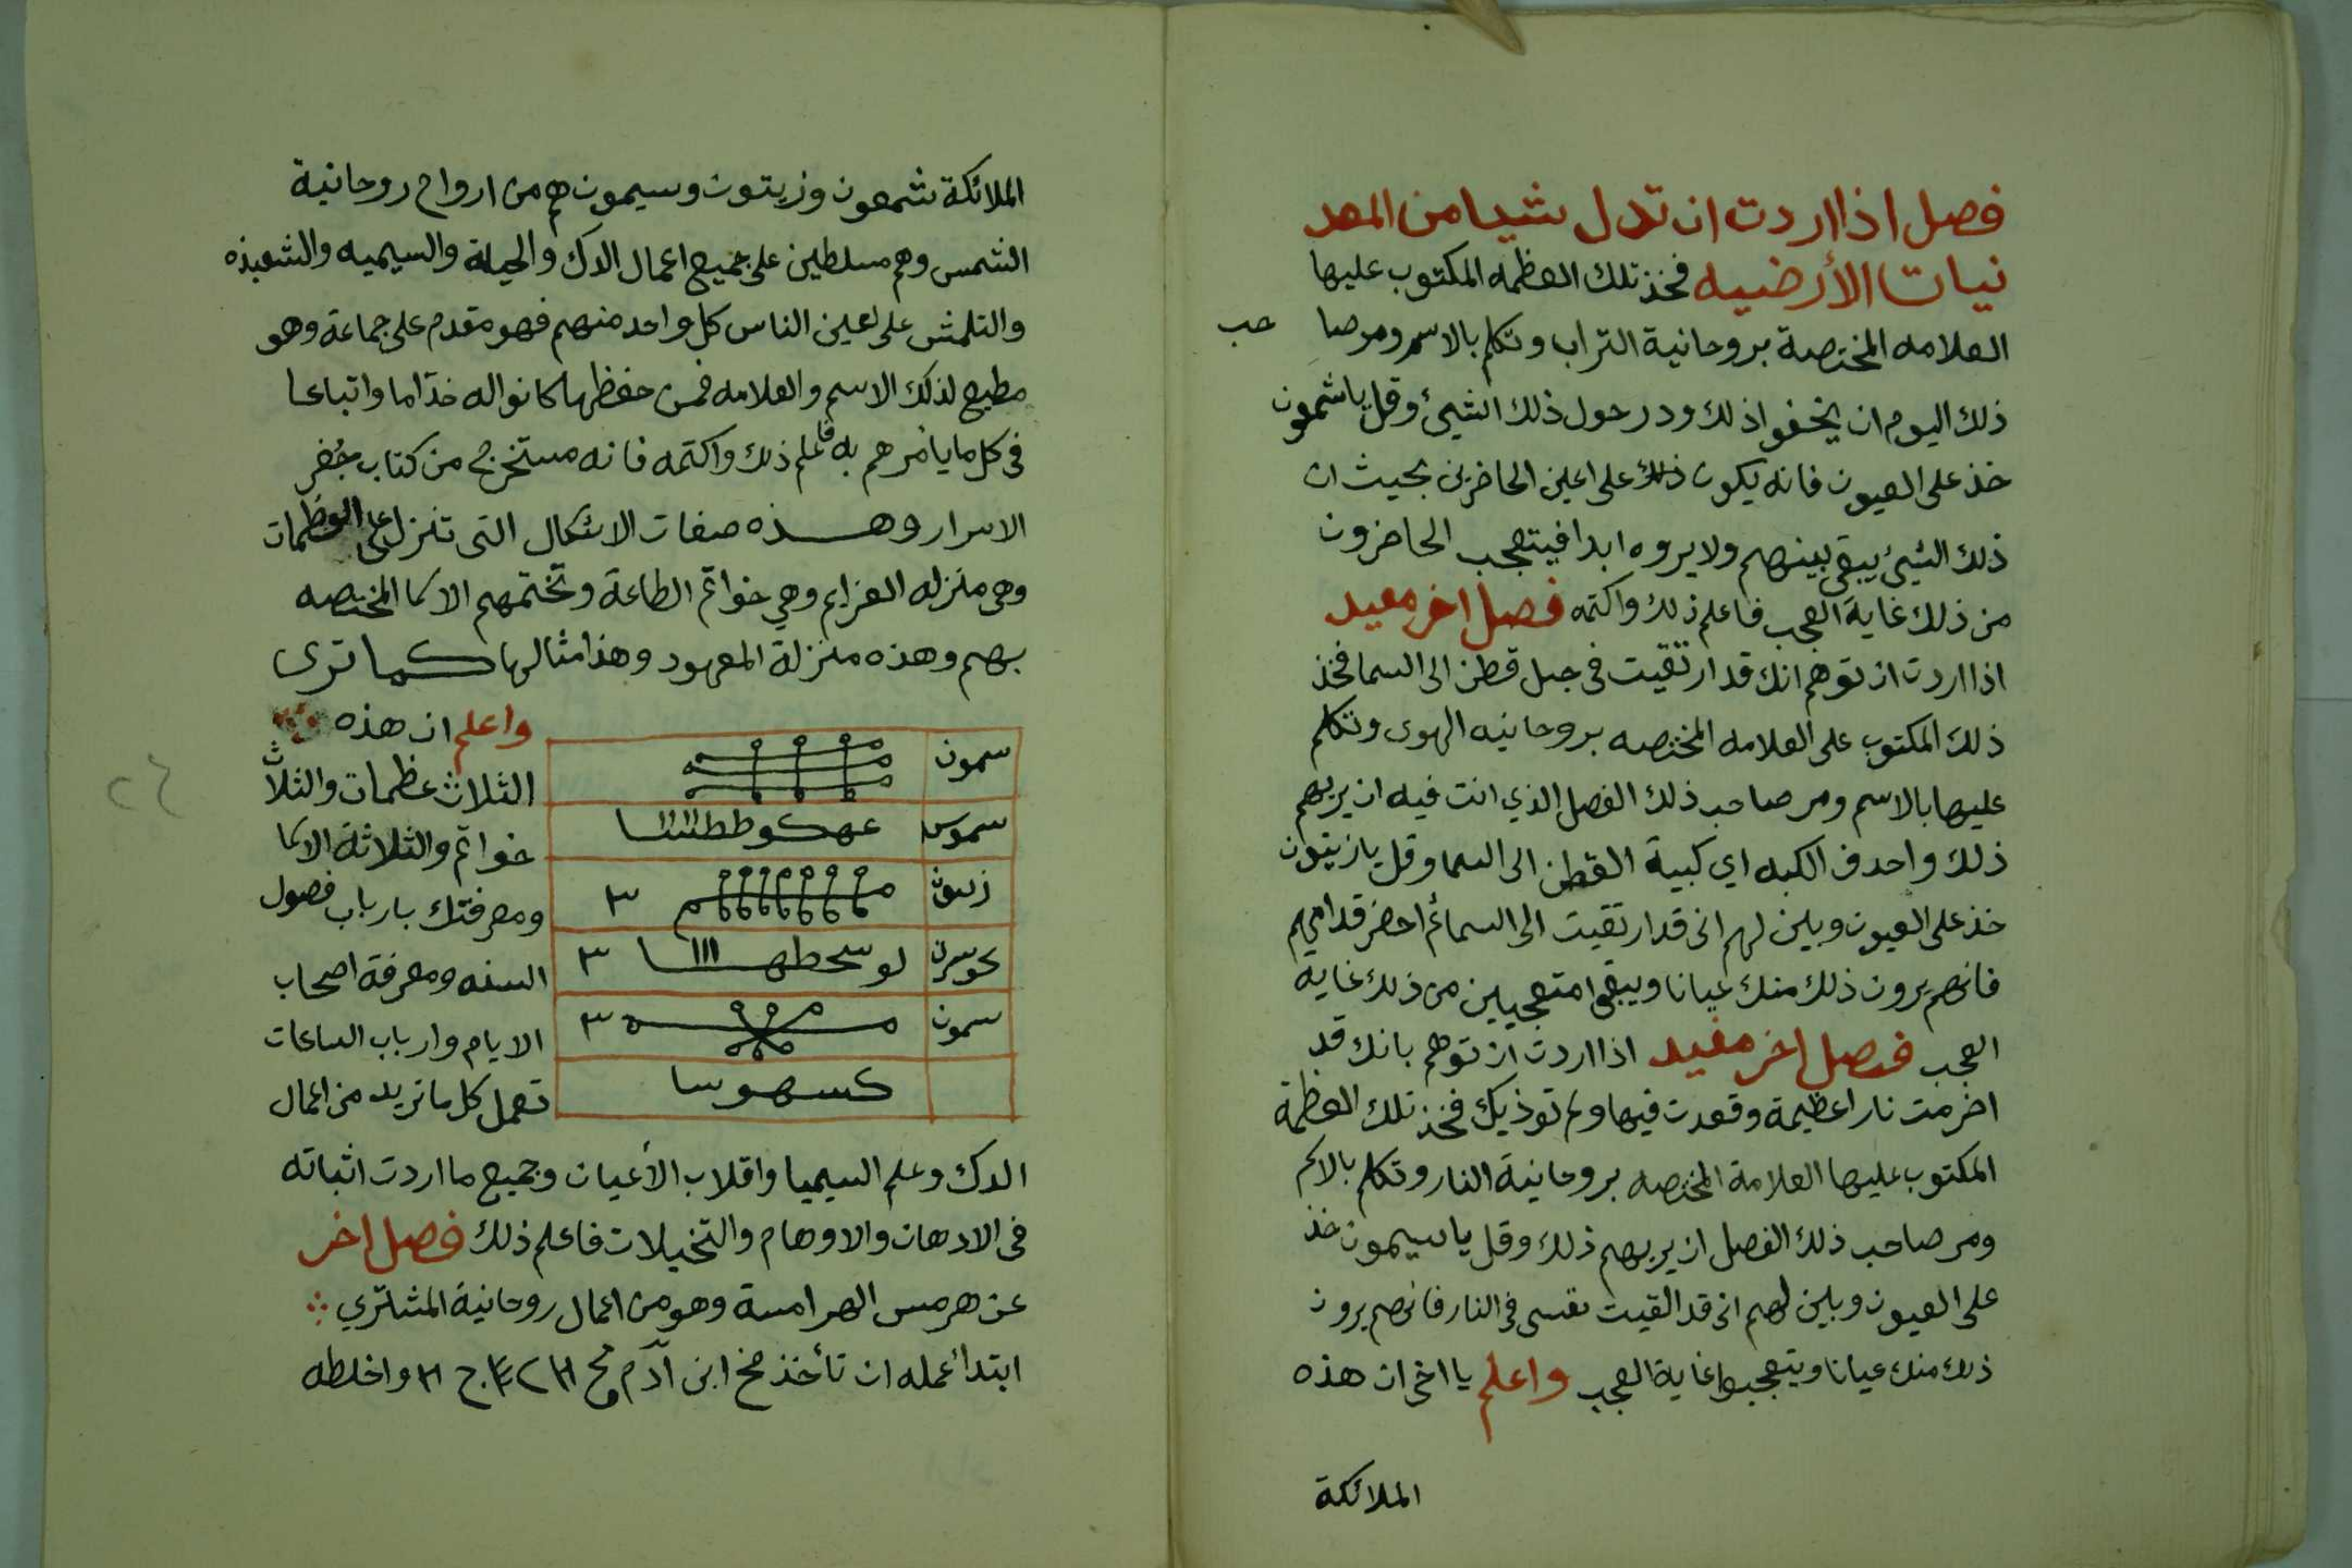 فصل اذا اردت ان تدل شيا من المعد
نيات الأرضيه فخذ تلك العظمه المكتوب عليها
العلامه المختصة بروحانية التراب وتكلم بالاسم ومر صا حب
ذلك اليوم ان يخفوا ذلك ودر حول ذلك الشيئ وقل يا شمعون
خذ على العيون فانه يكون ذلك على اعين الحاضرين بحيث ان
ذلك الشيئ يبقى بينهم ولا يروه ابدا فيتعجب الحاضرون
من ذلك غاية العجب فاعلم ذلك واكتمه فصل اخر مفيد
اذا اردت ان توهم انك قد ارتقيت في جبل قطن الى السما فخذ
ذلك المكتوب على العلامه المختصه بروحانيه الهوى وتتكلم
عليها بالاسم ومر صاحب ذلك الفصل الذي انت فيه ان يريهم
ذلك واحدف الكبه اي كبية القطن الى السما وقل يا زيتون
خذ على العيون وبين لهم انى قد ارتقيت الى السما ثم احضر قدامهم
فانهم يرون ذلك منك عيانا ويبقوا متعجبين من ذلك غايه
العجب فصل اخر مفيد اذا اردت ان توهم بانك قد
اضرمت نارا عظيمة وقعدت فيها ولم توذيك فخذ تلك العظمة
المكتوب عليها العلامة المختصه بروحانية النار وتكلم بالاسم
ومر صاحب ذلك الفصل ان يريهم ذلك وقل يا سيمون خذ
على العيون وبين لهم انى قد القيت نفسى فى النار فانهم يرون
ذلك منك عيانا ويتعجبوا غاية العجب واعلم يا اخى ان هذه
الملائكة
الملائكة شمعون وزيتون وسيمون هم من ارواح روحانية
الشمس وهم مسلطين على جميع اعمال الدك والحيلة والسيميه والشعبذه
والتلمش على اعين الناس كل واحد منهم فهو مقدم على جماعة وهو
مطيع لذلك الاسم والعلامه فمن حفظها كانوا له خدّاما واتباعا
فى كل ما يأمرهم به فاعلم ذلك واكتمه فانه مستخرج من كتاب جُفر
الاسرار وهذه صفات الاشكال التى تنزل على العظمات
وهى منزله العزايم وهي خواتم الطاعة وتختمهم الاسما المختصه
بهم وهذه منزلة المعهود وهذا مثالها كما ترى
واعلم ان هذه
الثلاث عظمات والثلاث
خواتم والثلاثة الاسما
ومعرفتك بارباب فصول
السنه ومعرفة اصحاب
الايام وارباب الساعات
تعمل كل ما تريد من اعمال
سمون
زيتون ٣
٣
سمون ٣
الدك وعلم السيميا واقلاب الأعيان وجميع ما اردت اثباته
فى الادهان والاوهام والتخيلات فاعلم ذلك فصل اخر
عن هرمس الهرامسة وهو من اعمال روحانية المشتري
ابتدأ عمله ان تأخذ مخ ابن آدم واخلطه